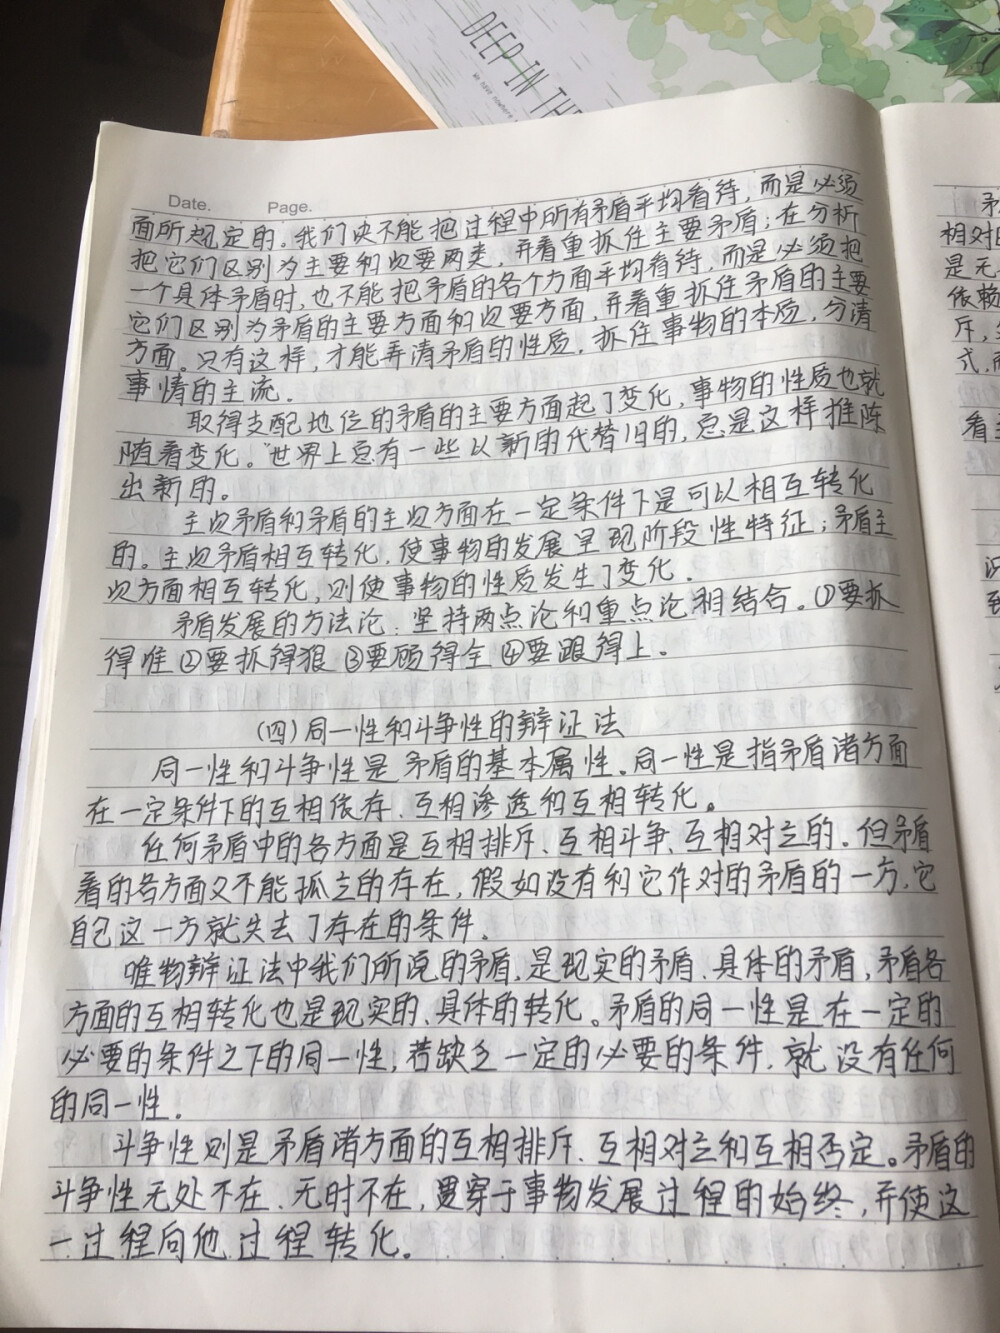 DEEP IN THE
Date. Page.
面所规定的。我们决不能把过程中所有矛盾平均看待，而是必须
把它们区别为主要和次要两类，并着重抓住主要矛盾；在分析
一个具体矛盾时，也不能把矛盾的各个方面平均看待，而是必须把
它们区别为矛盾的主要方面和次要方面，并着重抓住矛盾的主要
方面。只有这样，才能弄清矛盾的性质，抓住事物的本质，分清
事情的主流.
取得支配地位的矛盾的主要方面起了变化，事物的性质也就
随着变化。“世界上总有一些以新的代替旧的，总是这样推陈
出新的。
主次矛盾和矛盾的主次方面在一定条件下是可以相互转化
的。主次矛盾相互转化，使事物的发展呈现阶段性特征；矛盾主
次方面相互转化，则使事物的性质发生了变化.
矛盾发展的方法论：坚持两点论和重点论相结合。①要抓
得准②要抓得狠③要顾得全④要跟得上。
(四)同一性和斗争性的辩证法
同一性和斗争性是矛盾的基本属性。同一性是指矛盾诸方面
在一定条件下的互相依存、互相渗透和互相转化。
任何矛盾中的各方面是互相排斥、互相斗争、互相对立的。但矛盾
着的各方面又不能孤立的存在，假如没有和它作对的矛盾的一方，它
自己这一方就失去了存在的条件。
唯物辩证法中我们所说的矛盾，是现实的矛盾、具体的矛盾，矛盾各
方面的互相转化也是现实的、具体的转化。矛盾的同一性是在一定的
必要的条件之下的同一性；若缺乏一定的必要的条件，就没有任何
的同一性。
斗争性则是矛盾诸方面的互相排斥、互相对立和互相否定。矛盾的
斗争性无处不在、无时不在，贯穿于事物发展过程的始终，并使这
一过程向他过程转化。
矛
相对的
是无
依赖
斥，
式，而
看